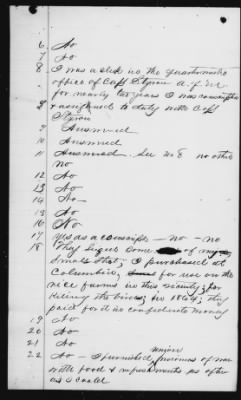 6 No
7 No
8 I was a clerk in the Quartermaster
office of Capt Styron A.Q.M.
for nearly two years I was conscripted
9 & assigned to duty with Capt
Styron
9 Answered
10 Answered
11 Answered. See No 8 no other
no
12 No
13 No
14 No
15 No
16 No
17 Was as a conscript - no - no
18 They bought some of my
small shot; I purchased at
Columbia, for use on the
rice farms in this vicinity; for
killing the birds; in 1864; they
paid for it in confederate money
19 No
20 No
21 No
22 No - I furnished union prisoners of war
with food & refreshments as often
as I could